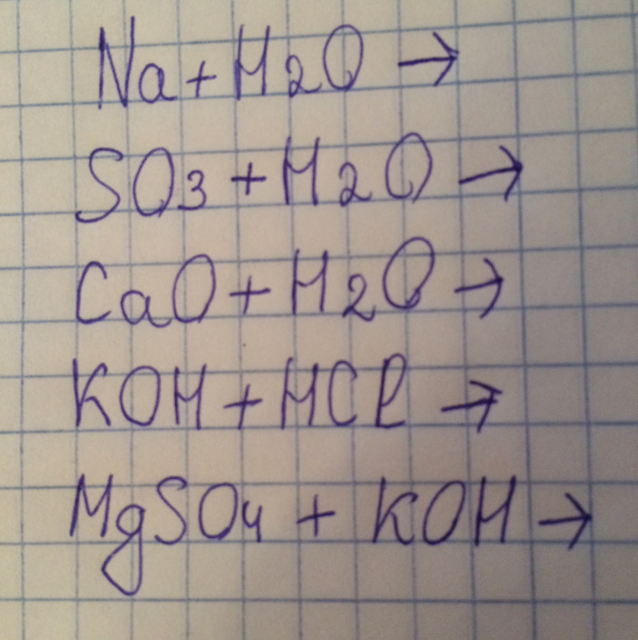 Na + H2O →
SO3 + H2O →
CaO + H2O →
KOH + HCl →
MgSO4 + KOH →